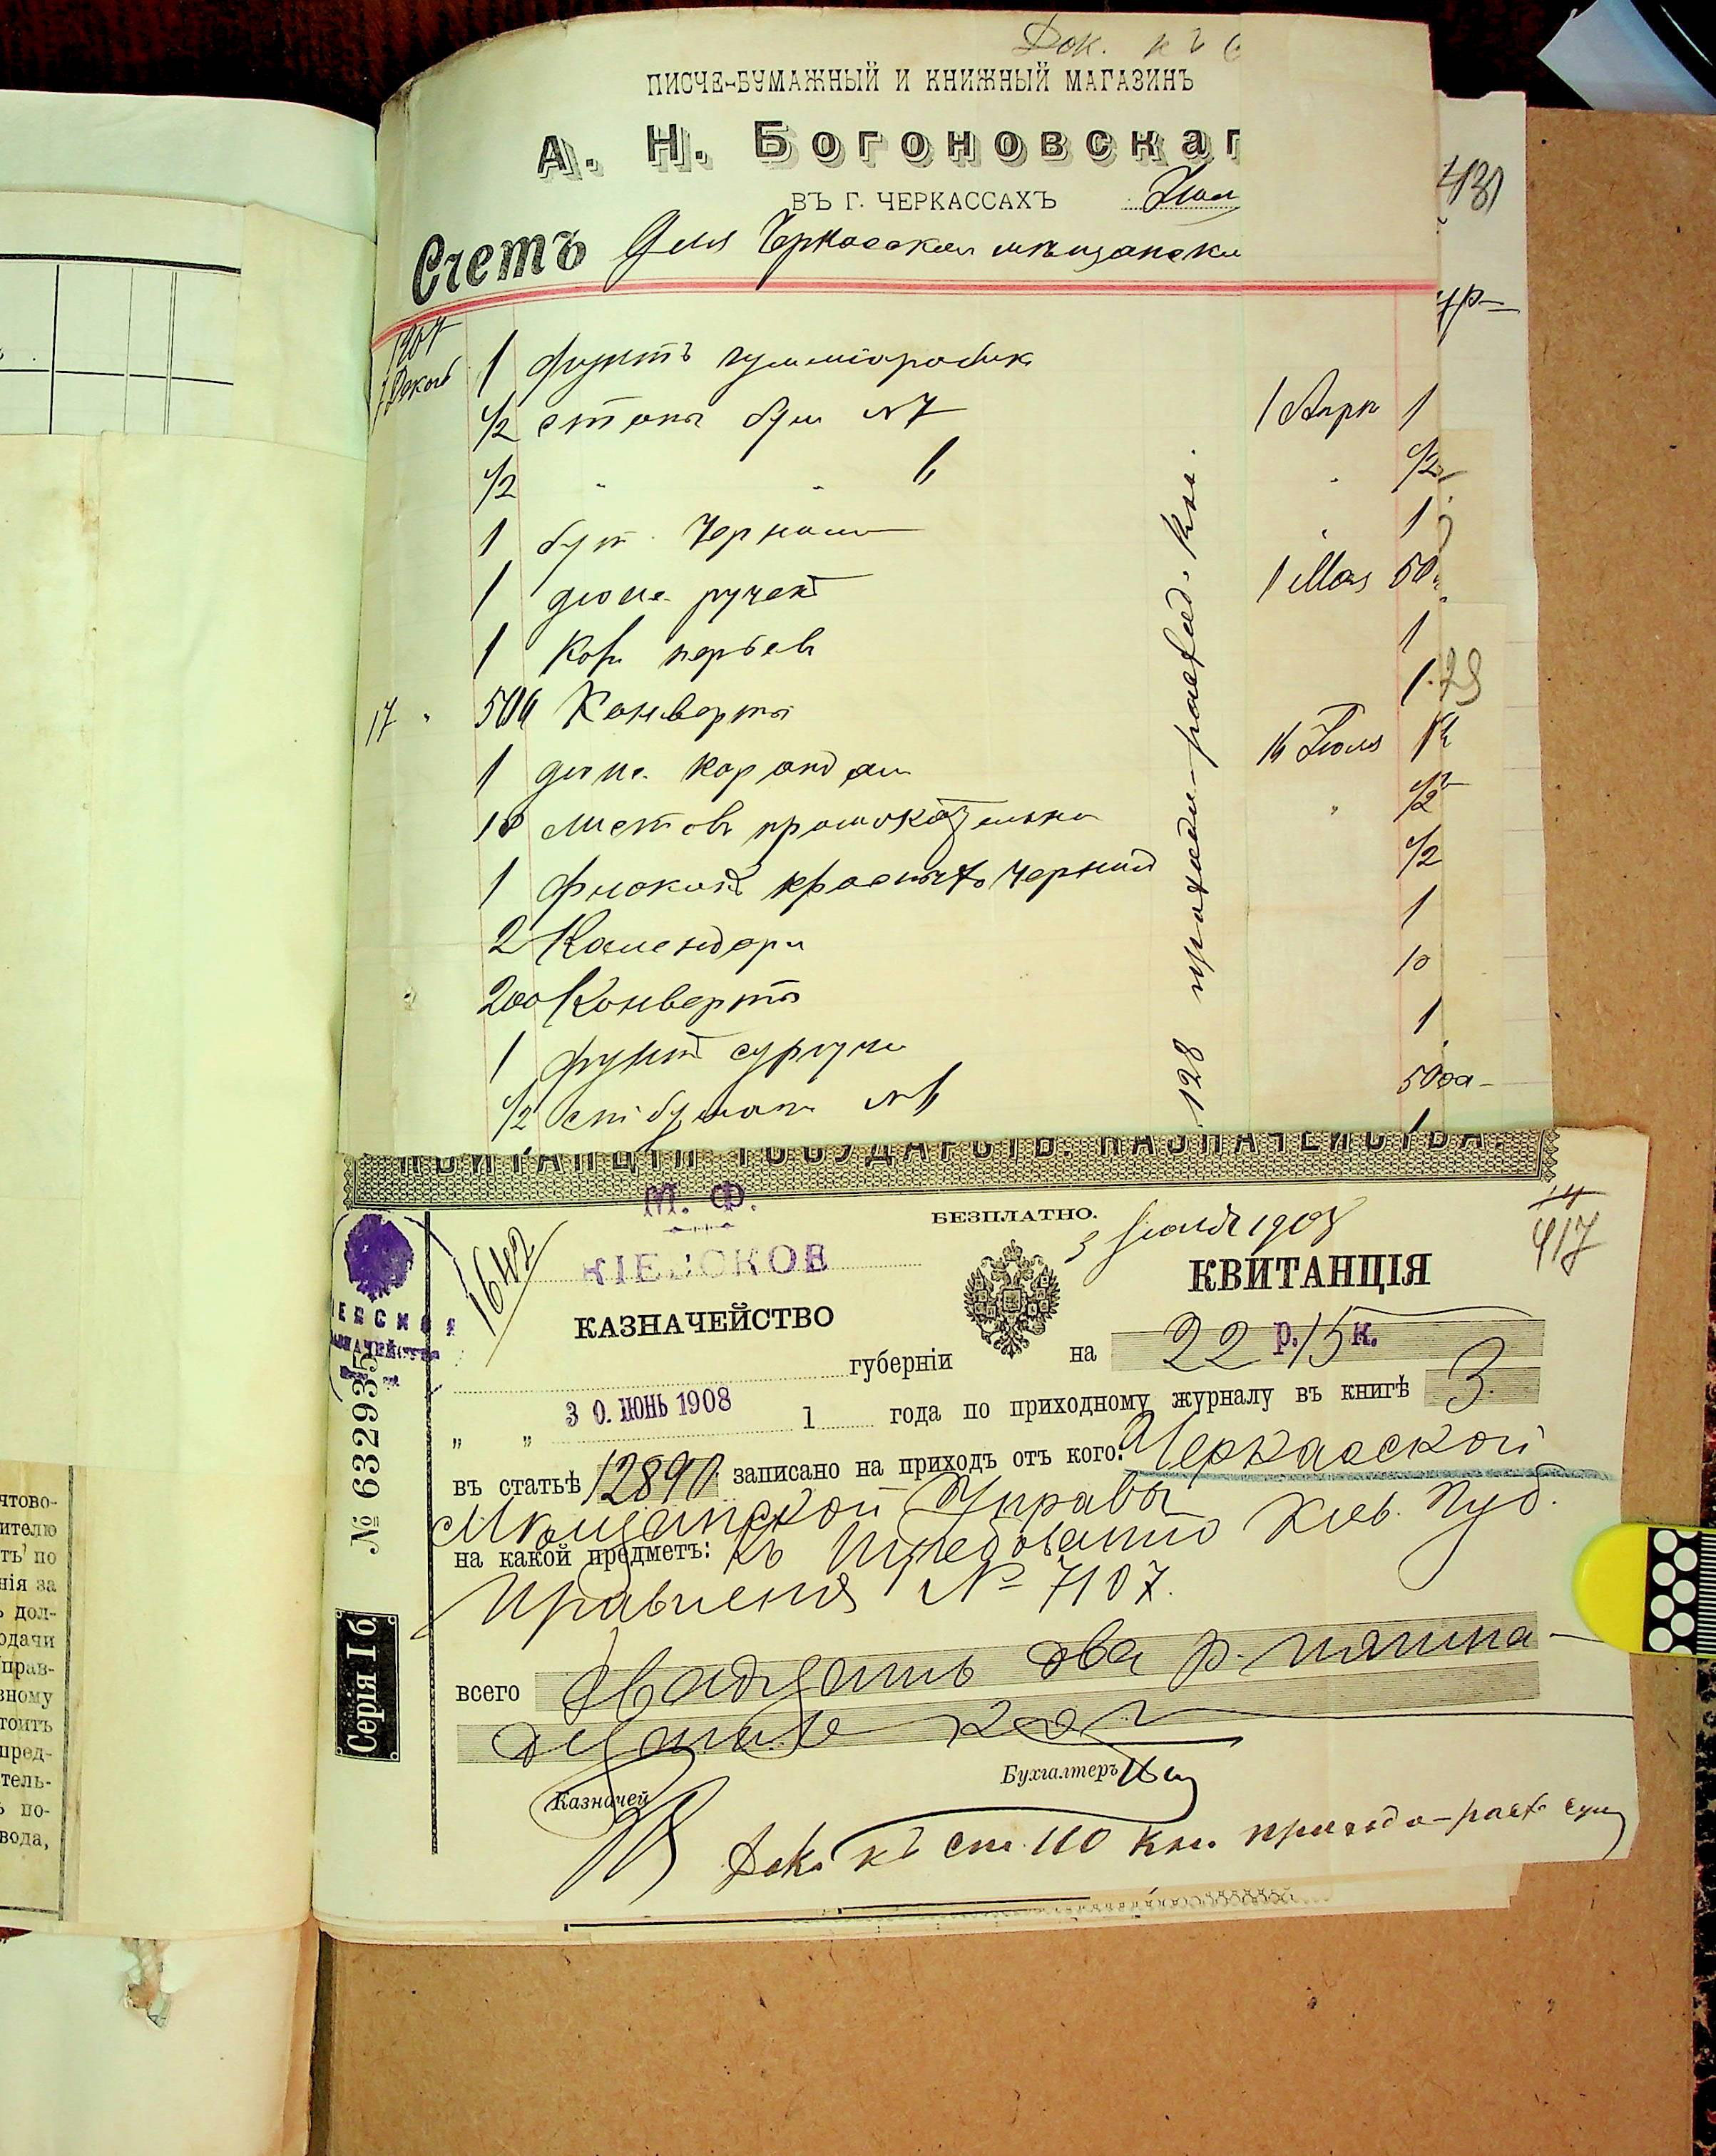 Док. к
ПИСЧЕ-БУМАЖНЫЙ И КНИЖНЫЙ МАГАЗИНЪ
А. Н. Богоновскаг
ВЪ Г. ЧЕРКАССАХЪ
Счетъ Для Черкасской мѣщанск
1 фунтъ гуммiарабик
1/2 стопы бум №7 1 Апр 1
1/2 " " 6 " 1/2
1 бут. Чернил 1
1 дюж. ручекъ 1 Мая 50
1 кор перьевъ 1
17 " 500 Конверты 1
1 дюж. каранд 16 Iюля 1
10 листовъ промокательн " 1/2
1 флаконъ красныхъ Чернил 1/2
2 Календари 1
200 Конверты 10
1 фунтъ сургуч 1
1/2 ст бумаги №6 500
128 приходо-расход. кн.
431
КВИТАНЦIЯ ГОСУДАРСТВ. КАЗНАЧЕЙСТВА.
М. Ф.
БЕЗПЛАТНО.
3 1908
417
1642
КIЕВСКОЕ
КВИТАНЦIЯ
КАЗНАЧЕЙСТВО
губернiи на 22 р. 15 к.
30. IЮНЬ 1908 1 года по приходному журналу въ книгѣ 3.
въ статьѣ 12890 записано на приходъ отъ кого: Черкасской
Мѣщанской Управы
на какой предметъ: Къ требованiю Кiев. Губ.
Правленiя № 7107.
всего двадцать два р. пятна-
дцать коп
Казначей
Бухгалтеръ
Док. къ ст. 110 кн. приходо-расх. сум
№ 632935
Серiя I б.
чтово-
ителю
ть по
нiя за
дол-
одачи
прав-
вному
тоитъ
пред-
тель-
по-
вода,